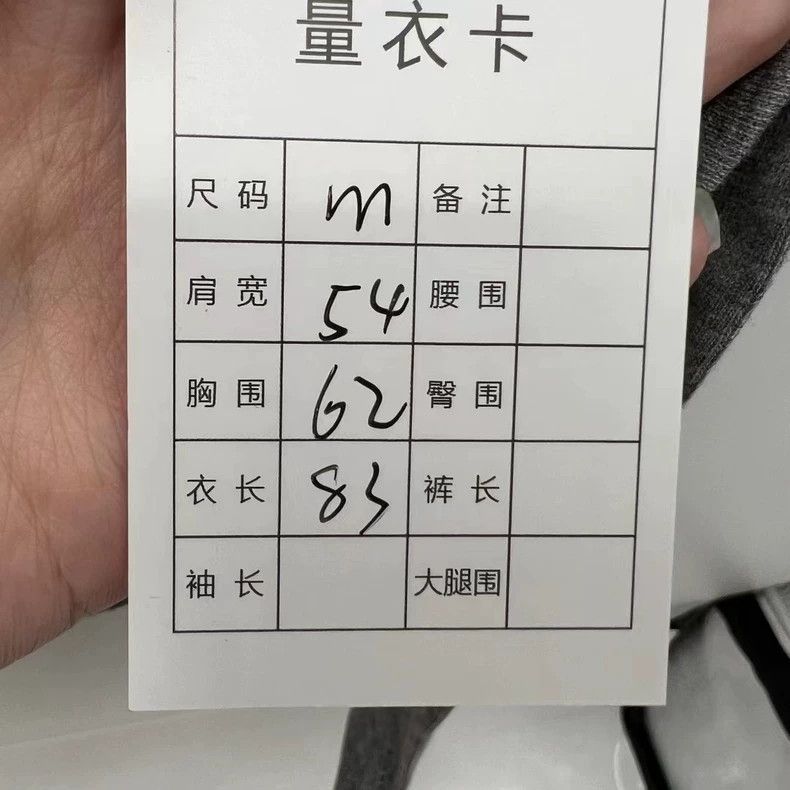 量衣卡
尺码 m 备注
肩宽 54 腰围
胸围 62 臀围
衣长 83 裤长
袖长 大腿围